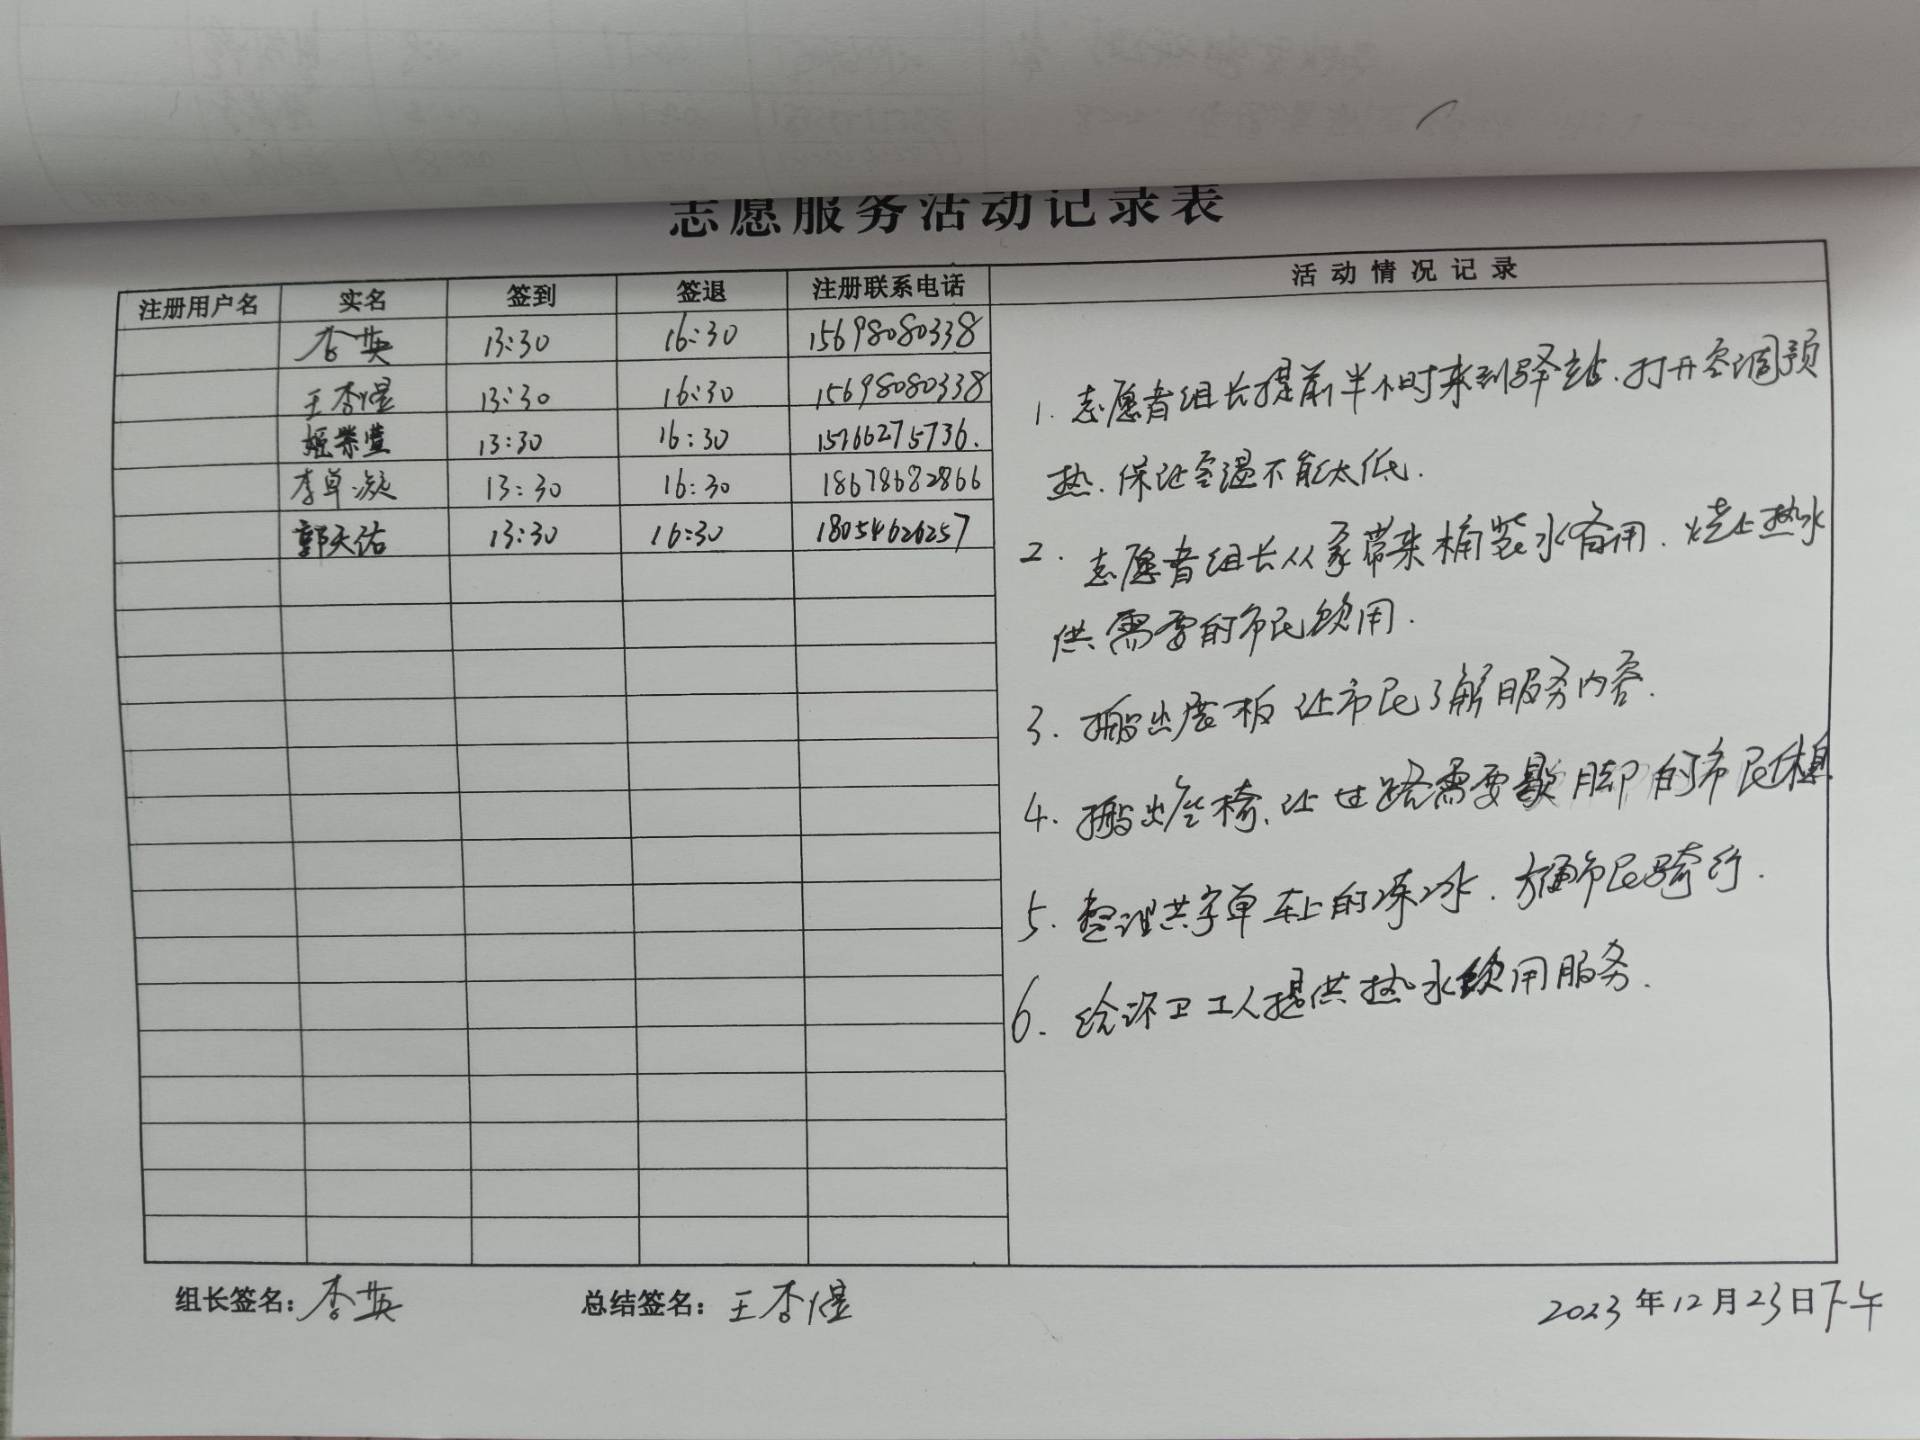 志愿服务活动记录表
注册用户名 实名 签到 签退 注册联系电话 活动情况记录
李英 13:30 16:30 15698080338
王李煜 13:30 16:30 15698080338
姬荣萱 13:30 16:30 15766275736.
李卓凝 13:30 16:30 18678682866
郭天佑 13:30 16:30 18054626257
1. 志愿者组长提前半小时来到驿站.打开空调预
热.保证室温不能太低.
2. 志愿者组长从家带来桶装水备用.烧上热水
供需要的市民饮用.
3. 搬出展板让市民了解服务内容.
4. 搬出座椅.让过路需要歇脚的市民休息
5. 整理共享单车上的冻冰.方便市民骑行.
6. 给环卫工人提供热水饮用服务.
组长签名:李英 总结签名:王李煜 2023年12月23日下午